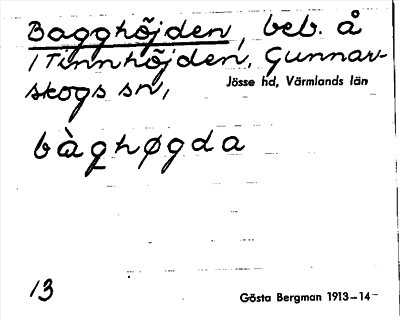 Bagghöjden, beb. å
/ Tinnhöjden, Gunnar-
skogs sn,
Jösse hd, Värmlands län
bàghøgda
13
Gösta Bergman 1913–14